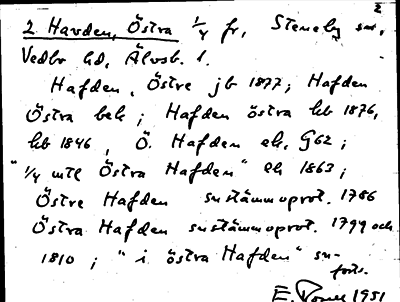 2
2. Havden, Östra 1/4 fr, Steneby sn,
Vedbo hd, Älvsb. l.
Hafden, Östre jb 1877; Hafden
Östra bek; Hafden östra kb 1876,
kb 1846, Ö. Hafden ek, G62;
"1/4 mtl Östra Hafden" ek 1863;
Östre Hafden sn stämmoprot. 1786
Östra Hafden sn stämmoprot. 1799 och
1810; "i östra Hafden" sn-
forts.
E. 1951